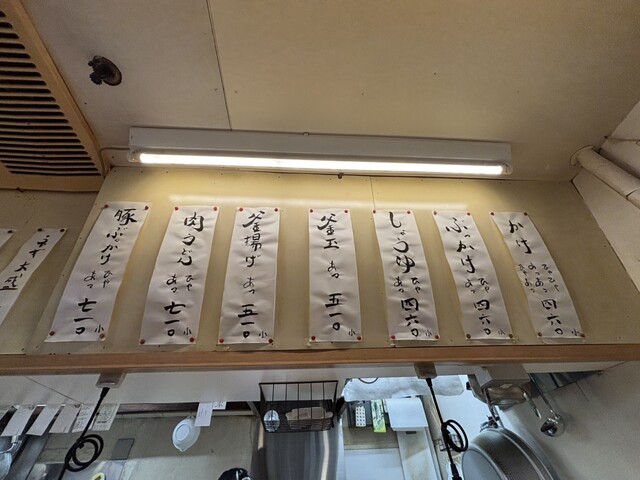 かけ
四六〇
小
ぶっかけ
ひや
あつ
四六〇
小
しょうゆ
ひや
あつ
四六〇
小
釜玉
あつ
五一〇
小
釜揚げ
あつ
五一〇
小
肉うどん
あつ
七一〇
小
豚ぶっかけ
ひや
あつ
七一〇
小